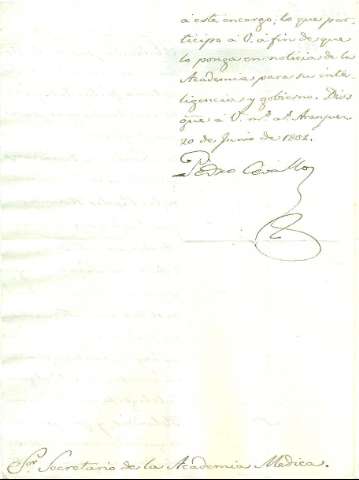 á este encargo; lo que par-
ticipo á V. á fin de que
lo ponga en noticia de la
Academia para su inte-
ligencia y gobierno. Dios
gue á V. ms. as. Aranjuez
20 de Junio de 1802.
Pedro Cevallos
Sor. Secretario de la Academia Medica.